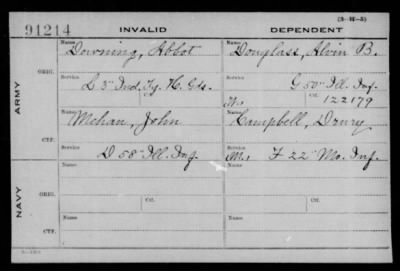 (3-M-3)
91214 INVALID DEPENDENT
Name Downing, Abbot Name Douglass, Alvin B.
ARMY
ORIG.
Service L 3" Ind. Ty. H. Gds. Service G 50" Ill. Inf.
M. Ctf. 122179
Name Mehan, John Name Campbell, Drury
CTF.
Service D 58" Ill. Inf. M. F 22" Mo. Inf.
NAVY
Name Name
ORIG.
Service Ctf. Service Ctf.
Name Name
CTF.
Service Service